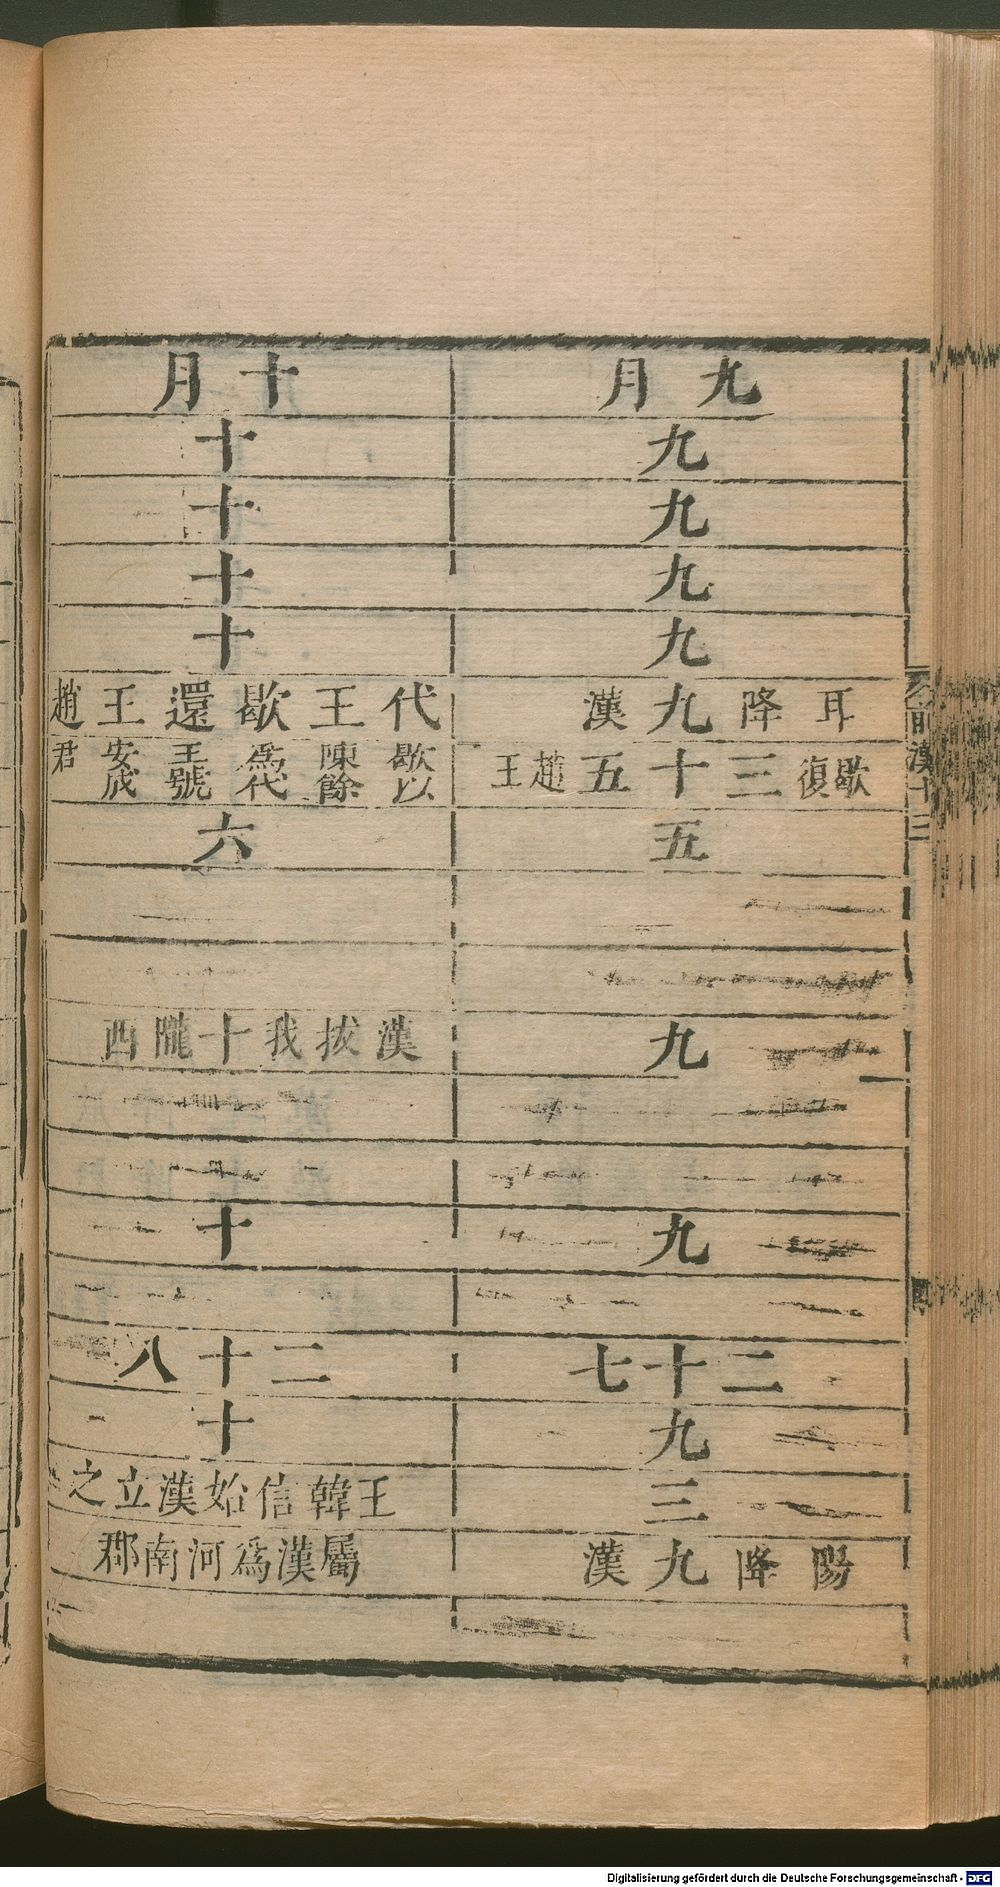 九月
九
九
九
九
耳降九漢
歇復三十五趙王
五
九
九
二十七
九
三
陽降九漢
十月
十
十
十
十
代王歇還王趙
歇以陳餘爲代王號安成君
六
漢拔我十隴西
十
二十八
十
王韓信始漢立之
屬漢爲河南郡
前漢十三
Digitalisierung gefördert durch die Deutsche Forschungsgemeinschaft - DFG